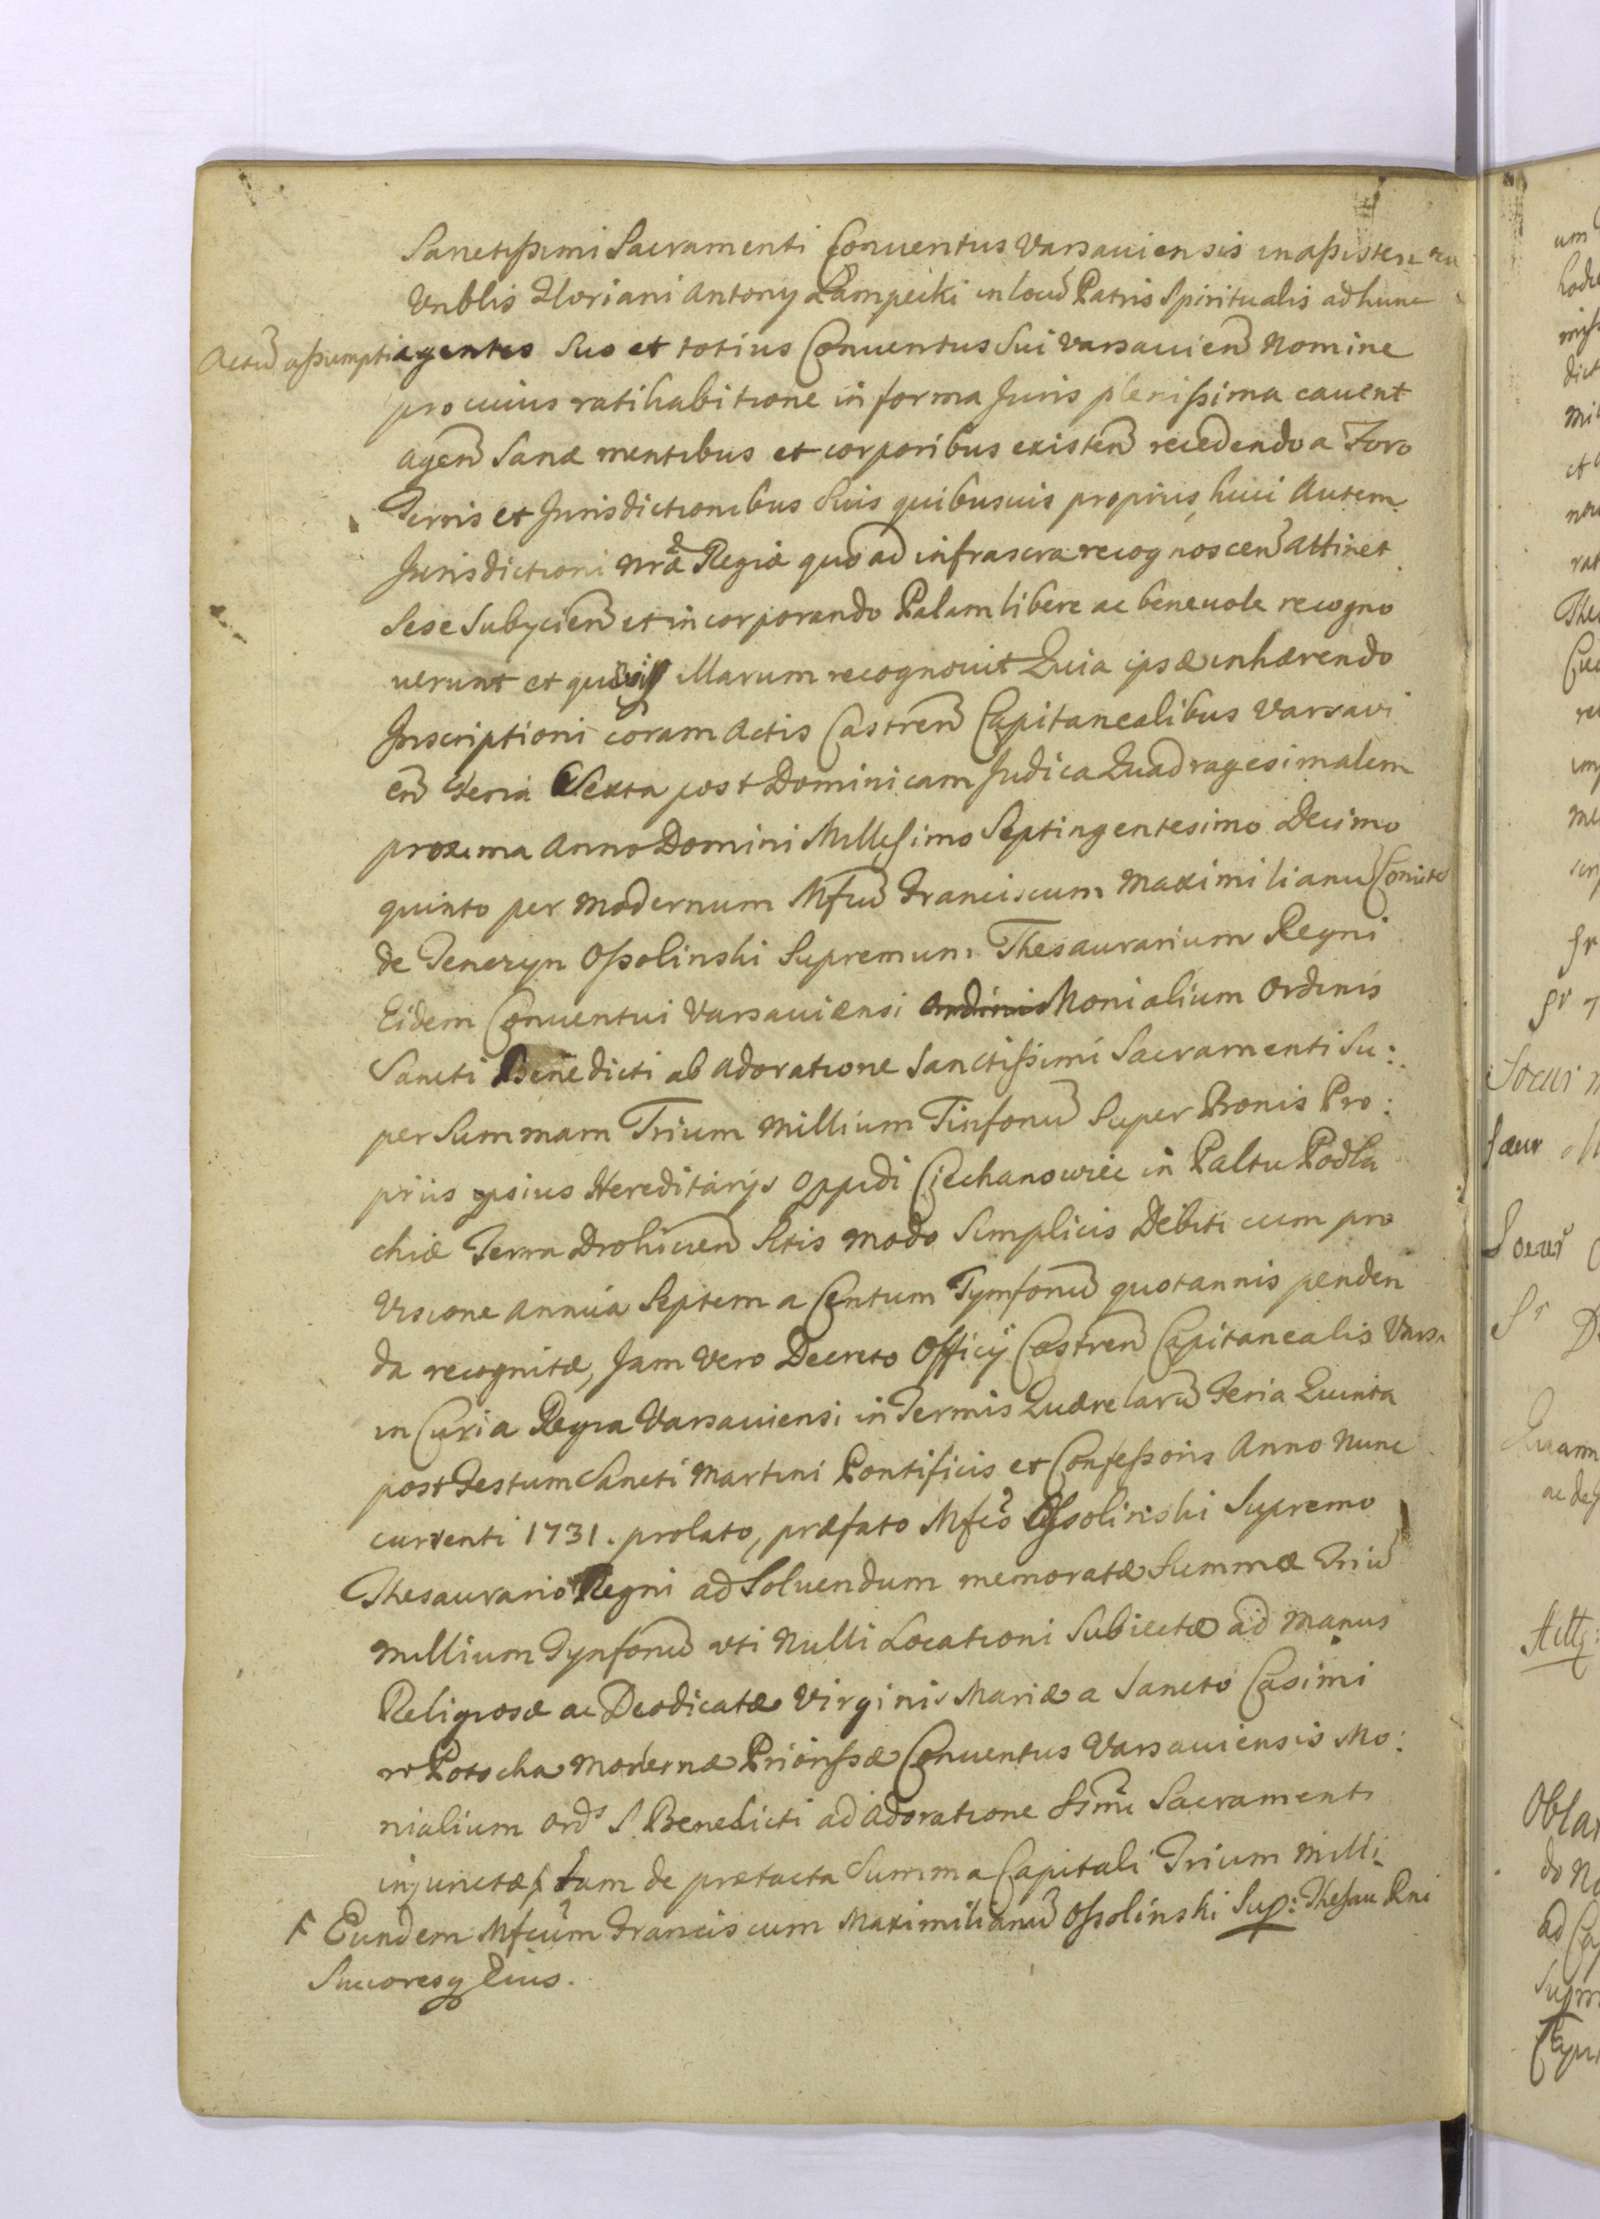 Sanctissimi Sacramenti Conventus Varsaviensis in assisten
Vnblis Floriani Antonÿ Lampecki in locũ Patris Spiritualis ad hunc
Actũ assumpti agentes Suo et totius Conuentus Sui Varsauien̄ Nomine
pro cuius ratihabitione in forma Juris plenissima cauent
agen̄ Sanæ mentibus et corporibus existen̄ recedendo a Foro
Terris et Jurisdictionibus Suis quibusuis proprijs, huic Autem
Jurisdictioni nr̃æ Regiæ quo ad infrascra recognoscen̄ attinet
Sese Subÿcien̄ et incorporando Palam libere ac beneuole recogno
uerunt et quæuis illarum recognouit Quia ipsæ inhærendo
Inscriptioni coram Actis Castren̄ Capitanealibus Varsavi
en̄ Feria Sexta post Dominicam Judica Quadragesimalem
proxima Anno Domini Millesimo Septingentesimo Decimo
quinto per Modernum Mfcũ Franciscum Maximilianũ Comitē
de Tenczyn Ossolinski Supremum Thesaurarium Regni
Eidem Conuentui Varsauiensi Ordinis Monialium Ordinis
Sancti Benedicti ab Adoratione Sanctissimi Sacramenti Su:
per Summam Trium Millium Tinfonũ Super Bonis Pro:
prijs ipsius Hereditarÿs Oppidi Ciechanowiec in Paltu Podla
chiæ Terra Drohicien̄ Sitis modo Simplicis Debiti cum pro
uisione Annua Septem a Centum Tymfonũ quotannis penden
da recognitæ, Jam Vero Decreto Officÿ Castren̄ Capitanealis Vars.
in Curia Regia Varsauiensi in Termis Quærelarũ Feria Quinta
post Festum Sancti Martini Pontificis et Confessoris Anno Nunc
currenti 1731. prolato, præfato Mfcõ Ossolinski Supremo
Thesaurario Regni ad Soluendum memoratæ Summæ Triũ
Millium Tynfonũ uti Nulli Locationi Subiectæ ad Manus
Religiosæ ac Deodicatæ Virginis Mariæ a Sancto Casimi
ro Potocka Modernæ Priorissæ Conuentus Varsauiensis Mo:
nialium Ord̃s S. Benedicti ad Adoratione Ss̃mi Sacramenti
injunctæ, tam de prætacta Summa Capitali Trium Milli
F Eundem Mfcũm Franciscum Maximilianũ Ossolinski Sup: Thesau Rni
Succoresq Eius.